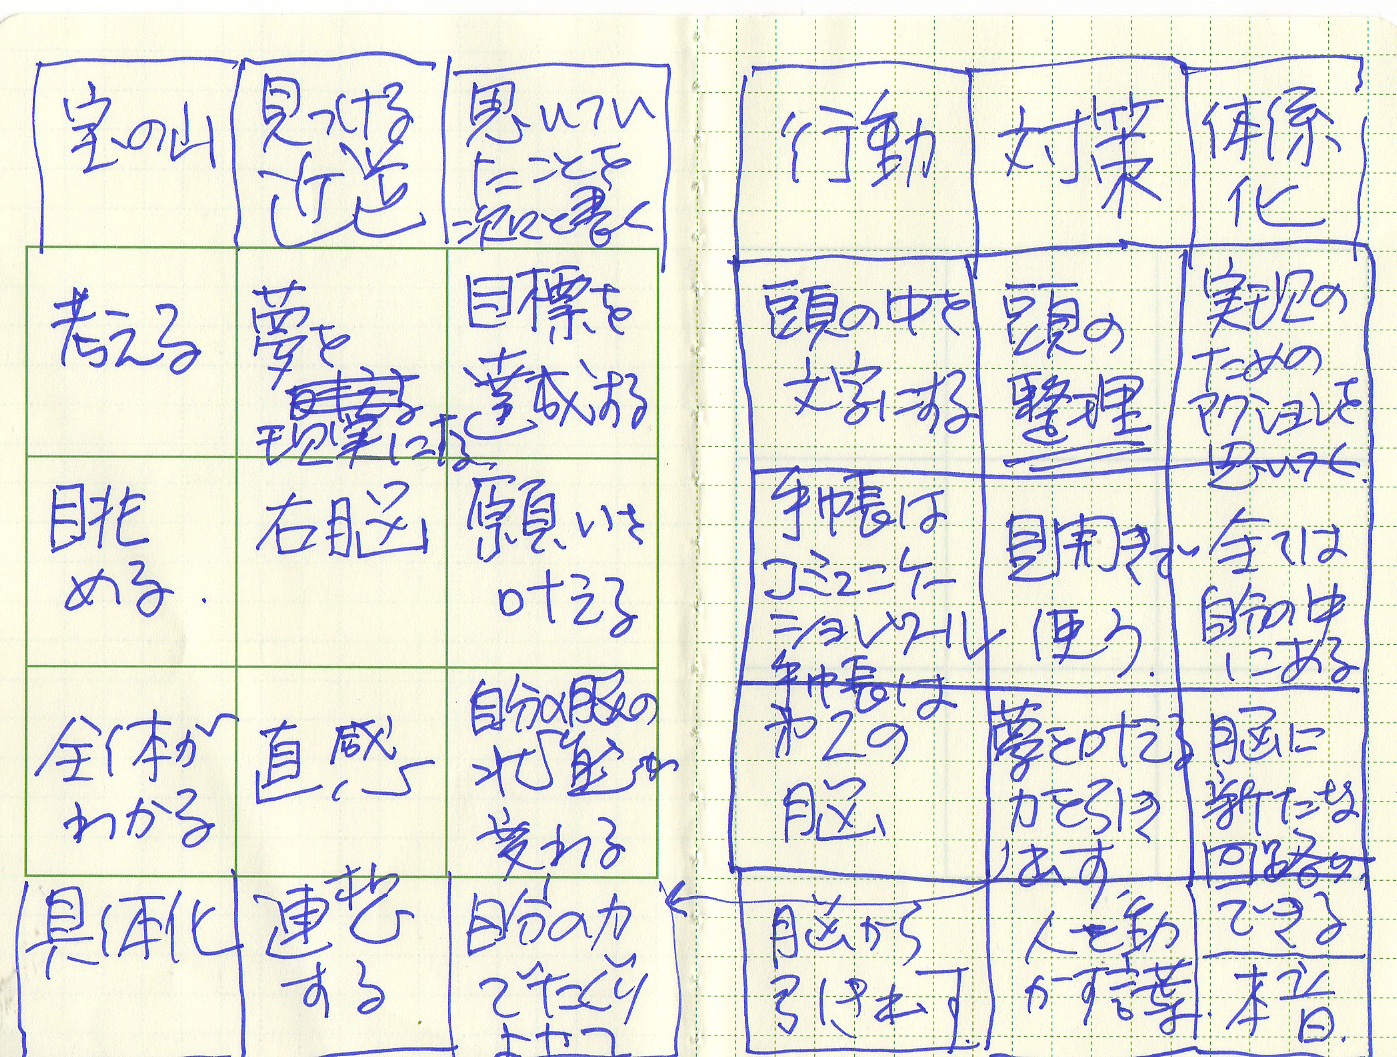 宝の山
見つける
近道
思いつい
たことを
次に書く
考える
夢を
現実にする
目標を
達成する
眺
める.
右脳
願いを
叶える
全体が
わかる
直感
自分の脳の
状態が
変わる
具体化
連想
する
自分の力
でたぐり
よせて
行動
対策
体系
化
頭の中を
文字にする
頭の
整理
実現の
ための
アクションを
思いつく.
手帳は
コミュニケー
ションツール
見開きで
使う.
全ては
自分の中
にある
手帳は
第2の
脳
夢を叶える
力を引き
出す
脳に
新たな
回路が
できる
脳から
引き出す.
人を動
かす言葉.
本音.